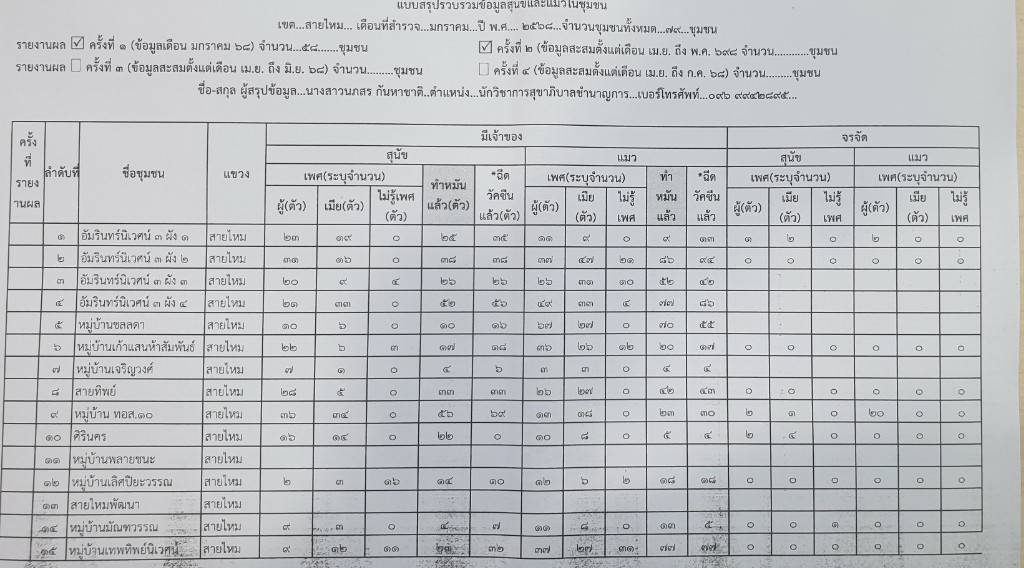 แบบสรุปรวบรวมข้อมูลสุนัขและแมวในชุมชน
เขต...สายไหม... เดือนที่สำรวจ...มกราคม...ปี พ.ศ.... ๒๕๖๘...จำนวนชุมชนทั้งหมด...๗๙...ชุมชน
รายงานผล ☑ ครั้งที่ ๑ (ข้อมูลเดือน มกราคม ๖๘) จำนวน...๕๘.......ชุมชน ☑ ครั้งที่ ๒ (ข้อมูลสะสมตั้งแต่เดือน เม.ย. ถึง พ.ค. ๖๙๘ จำนวน............ชุมชน
รายงานผล ☐ ครั้งที่ ๓ (ข้อมูลสะสมตั้งแต่เดือน เม.ย. ถึง มิ.ย. ๖๘) จำนวน.........ชุมชน ☐ ครั้งที่ ๔ (ข้อมูลสะสมตั้งแต่เดือน เม.ย. ถึง ก.ค. ๖๘) จำนวน.........ชุมชน
ชื่อ-สกุล ผู้สรุปข้อมูล...นางสาวนภสร กันหาชาติ..ตำแหน่ง...นักวิชาการสุขาภิบาลชำนาญการ...เบอร์โทรศัพท์...๐๙๖ ๙๙๔๒๘๙๕...
ครั้งที่รายงานผล ลำดับที่ ชื่อชุมชน แขวง มีเจ้าของ จรจัด
สุนัข แมว สุนัข แมว
เพศ(ระบุจำนวน) ทำหมันแล้ว(ตัว) *ฉีดวัคซีนแล้ว(ตัว) เพศ(ระบุจำนวน) ทำหมันแล้ว *ฉีดวัคซีนแล้ว เพศ(ระบุจำนวน) เพศ(ระบุจำนวน)
ผู้(ตัว) เมีย(ตัว) ไม่รู้เพศ(ตัว) ผู้(ตัว) เมีย(ตัว) ไม่รู้เพศ ผู้(ตัว) เมีย(ตัว) ไม่รู้เพศ ผู้(ตัว) เมีย(ตัว) ไม่รู้เพศ
๑ อัมรินทร์นิเวศน์ ๓ ผัง ๑ สายไหม ๒๓ ๑๙ ๐ ๒๕ ๓๕ ๑๑ ๙ ๐ ๙ ๑๓ ๑ ๒ ๐ ๒ ๐ ๐
๒ อัมรินทร์นิเวศน์ ๓ ผัง ๒ สายไหม ๓๑ ๑๖ ๐ ๓๘ ๓๘ ๓๗ ๔๗ ๒๑ ๘๖ ๙๔ ๐ ๐ ๐ ๐ ๐ ๑
๓ อัมรินทร์นิเวศน์ ๓ ผัง ๓ สายไหม ๒๐ ๙ ๔ ๒๖ ๒๖ ๒๖ ๓๑ ๑๐ ๕๒ ๔๒
๔ อัมรินทร์นิเวศน์ ๓ ผัง ๔ สายไหม ๒๑ ๓๓ ๐ ๕๒ ๕๖ ๔๙ ๓๓ ๔ ๗๗ ๘๖
๕ หมู่บ้านชลลดา สายไหม ๑๐ ๖ ๐ ๑๐ ๑๖ ๖๗ ๒๗ ๐ ๗๐ ๕๕
๖ หมู่บ้านเก้าแสนห้าสัมพันธ์ สายไหม ๒๒ ๖ ๓ ๑๗ ๑๘ ๓๖ ๒๖ ๑๒ ๒๐ ๑๗ ๐ ๐ ๐ ๐ ๐ ๐
๗ หมู่บ้านเจริญวงศ์ สายไหม ๗ ๑ ๐ ๔ ๖ ๓ ๓ ๐ ๔ ๔
๘ สายทิพย์ สายไหม ๒๘ ๕ ๐ ๓๓ ๓๓ ๒๖ ๒๗ ๐ ๔๒ ๔๓ ๐ ๐ ๐ ๐ ๐ ๐
๙ หมู่บ้าน ทอส.๑๐ สายไหม ๓๖ ๓๔ ๐ ๕๖ ๖๙ ๑๓ ๑๘ ๐ ๒๓ ๓๐ ๒ ๑ ๐ ๒๐ ๐ ๐
๑๐ ศิรินคร สายไหม ๑๖ ๑๔ ๐ ๒๒ ๐ ๑๐ ๘ ๐ ๕ ๔ ๒ ๔ ๐ ๐ ๐ ๐
๑๑ หมู่บ้านพลายชนะ สายไหม
๑๒ หมู่บ้านเลิศปิยะวรรณ สายไหม ๒ ๓ ๑๖ ๑๔ ๑๐ ๑๒ ๖ ๒ ๑๘ ๑๘ ๐ ๐ ๐ ๐ ๐ ๐
๑๓ สายไหมพัฒนา สายไหม
๑๔ หมู่บ้านมัณฑวรรณ สายไหม ๙ ๓ ๐ ๔ ๗ ๑๑ ๘ ๐ ๑๓ ๕ ๐ ๐ ๑ ๐ ๐ ๐
๑๕ หมู่บ้านเทพทิพย์นิเวศน์ สายไหม ๙ ๑๒ ๑๑ ๒๓ ๓๒ ๓๗ ๒๗ ๓๑ ๗๗ ๗๗ ๐ ๐ ๐ ๐ ๐ ๐